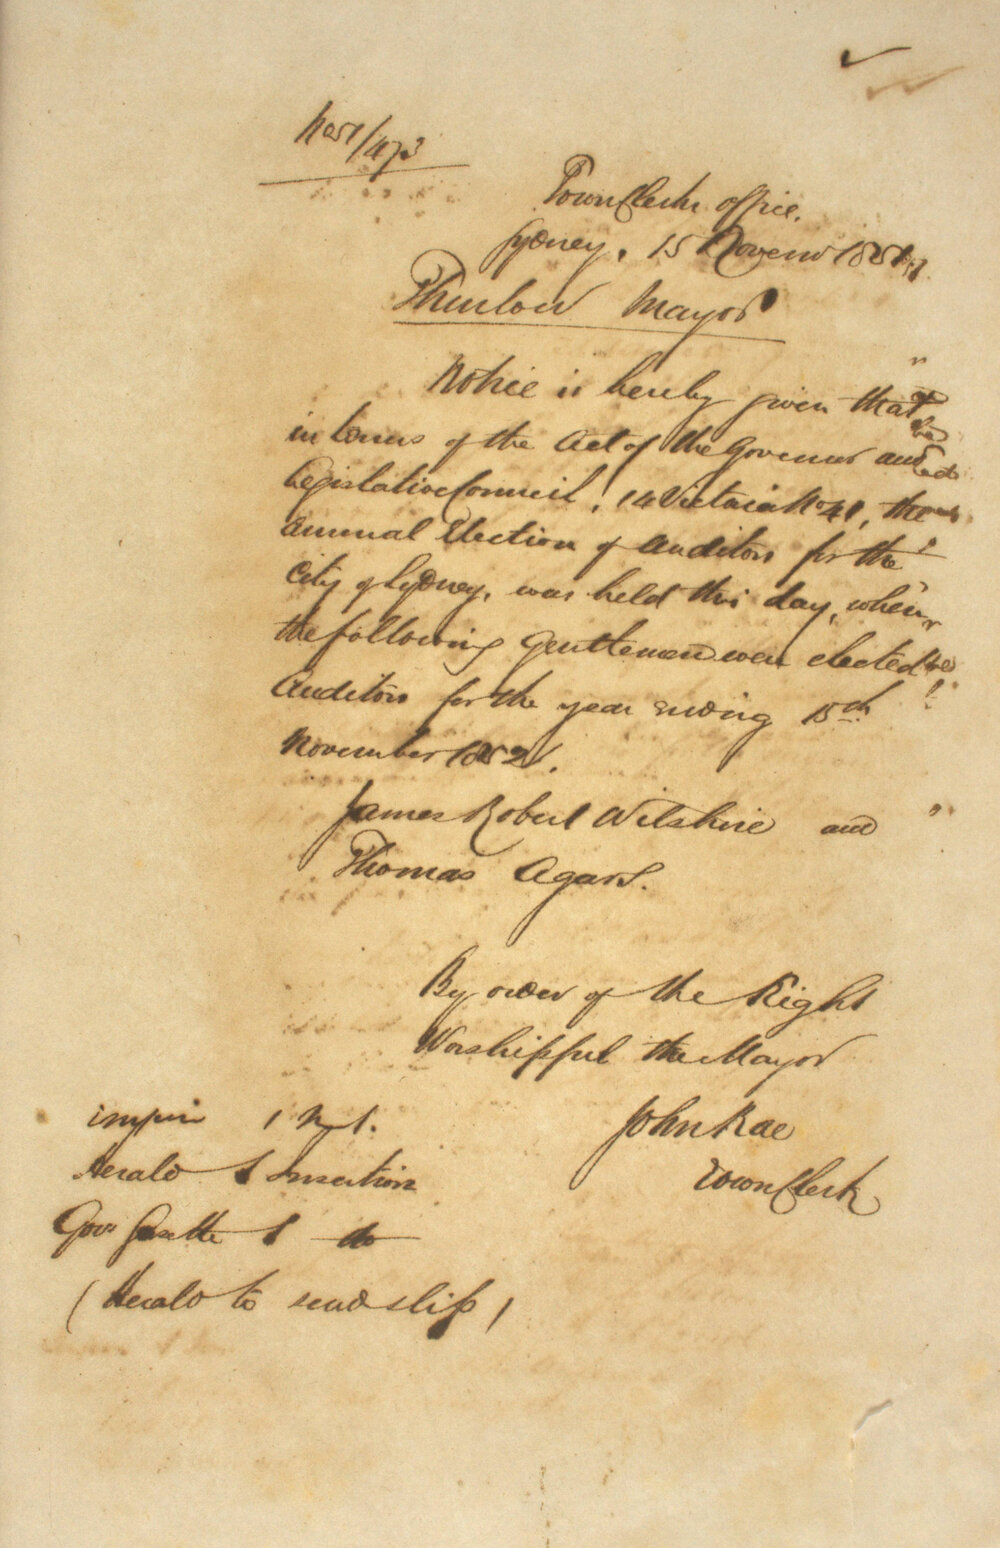 No 51/473
Town Clerks office.
Sydney, 15 Novemr 1851
Thurlow Mayor
Notice is hereby given that
in terms of the Act of the Governor and
Legislative Council, 14 Victoria No 41, the
annual Election of Auditors for the
City of Sydney, was held this day, when
the following Gentlemen were elected
Auditors for the year ending 15th
November 1852.
James Robert Wilshire and
Thomas Agars.
By order of the Right
Worshipful the Mayor
John Rae
Town Clerk
Empire 1
Herald 1 Insertion
Govt Gazette 1 do
(Herald to send slip)